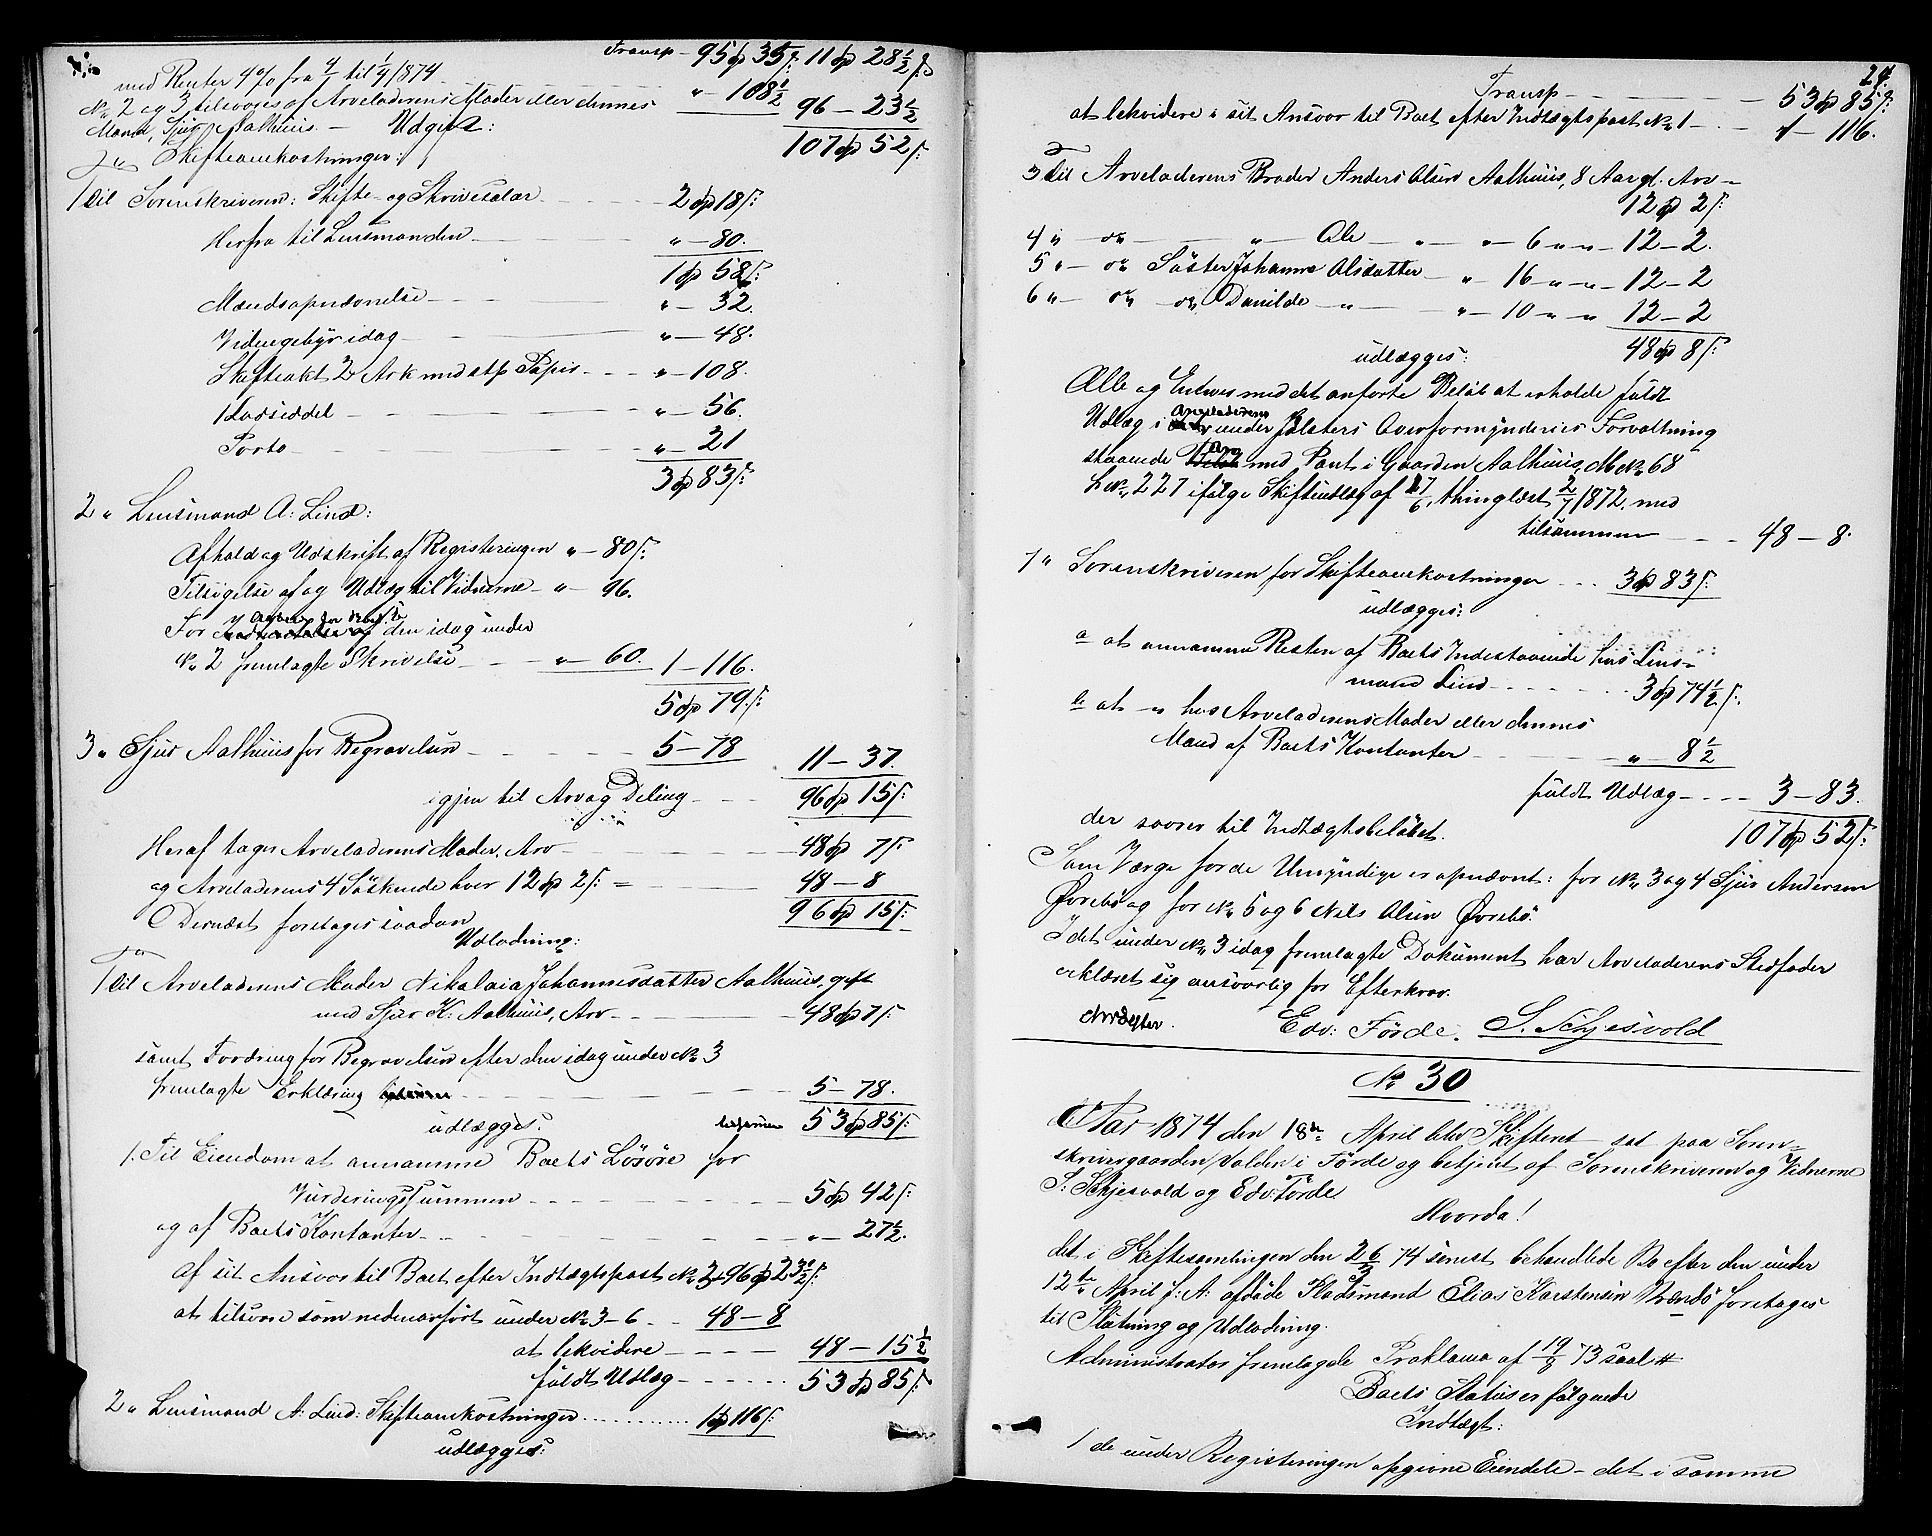 Transp – 95 ₰ 35 ß: 11 ₰ 28½ ß
med Renter 4% fra til 1/4 1874 " – 108½
No 2 og 3 tilsvares af Arveladerens Moder eller dennes 96 – 23½
Mand, Sjur Aalhuus. – Udgift: 107 ₰ 52 ß:
Skifteomkostninger:
1 til Sorenskriveren: Skifte- og Skrivesalær 2 ₰ 18 ß:
Herfra til Lensmanden " – 80.
1 ₰ 58 ß:
Mandsopnævnelse " – 32.
Vidnegebyr idag " – 48.
Skifteakt 2 Ark med stp Papir " – 108.
1 Lodseddel " – 56.
Porto " – 21
3 ₰ 83 ß:
2 " Lensmand A: Lind:
Afhold og Udskrift af Registeringen " – 80 ß:
Tilsigelse af og Udlæg til Vidnerne " – 96.
For den idag under
No 2 fremlagte Skrivelse " – 60. 1 – 116.
5 ₰ 79 ß:
3 " Sjur Aalhuus for Begravelsen 5 – 78 11 – 37.
igjen til Arv og Deling 96 ₰ 15 ß:
Heraf tager Arveladerens Moder, Arv 48 ₰ 7 ß
og Arveladerens 4 Söskende hver 12 ₰ 2 ß: = 48 – 8
Dernæst foretages saadan 96 ₰ 15 ß:
Udlodning:
1 til Arveladerens Moder Nikolaia Johannesdatter Aalhuus, gift
med Sjur K: Aalhuus, Arv 48 ₰ 7 ß
samt Fordring for Begravelsen efter den idag under No 3
fremlagte Erklæring 5 – 78.
udlægges: tilsammen 53 ₰ 85 ß
1. Til Eiendom at annamme Boets Lösöre for
Vurderingssummen 5 ₰ 42 ß:
og af Boets Kontanter " – 27½.
af sit Ansvar til Boet efter Indtægtspost No 2 96 ₰ 23½ ß:
at tilsvare som nedenanfört under No 3–6 48 – 8
at likvidere 48 – 15½
fuldt Udlæg 53 ₰ 85 ß
2 " Lensmand A: Lind: Skifteomkostninger 1 ₰ 116 ß:
udlægges:
24
Transp 53 ₰ 85 ß:
at likvidere i sit Ansvar til Boet efter Indtægtspost No 1 1 – 116.
3 til Arveladerens Broder Anders Olsen Aalhuus, 8 Aar gl. Arv –
12 ₰ 2 ß:
4 " – do – " – Ole – " – " – 6 " " – 12 – 2.
5 " – do Söster Johanne Olsdatter – " – 16 " " – 12 – 2
6 " – do – do Danilde – " – " – 10 " " 12 – 2
udlægges: 48 ₰ 8 ß:
Alle og Enhver med det anförte Belöb at erholde fuldt
Udlæg i Arveladerens under Jölsters Overformynderies Forvaltning
staaende Arv med Pant i Gaarden Aalhuus, M No 68
L No 227 ifölge Skifteudlæg af 17/6, thinglæst 2/7 1872, med
tilsammen 48 – 8.
7 " Sorenskriveren for Skifteomkostninger 3 ₰ 83 ß:
udlægges:
a at annamme Resten af Boets Indestaaende hos Lens=
mand Lind 3 ₰ 74½ ß:
b at – " hos Arveladerens Moder eller dennes
Mand af Boets Kontanter " – 8½
fuldt Udlæg 3 – 83.
der svarer til Indtægtsbelöbet. 107 ₰ 52 ß:
Som Værge for de Umyndige er opnævnt: for No 3 og 4 Sjur Andersen
Övrebö og for No 5 og 6 Nils Olsen Övrebö.
I det under No 3 idag fremlagte Dokument har Arveladerens Stedfader
erklæret sig ansvarlig for Efterkrav.
Edv: Förde. S. Schjesvold
No 30
Aar 1874 den 18de April blev Skifteret sat paa Soren=
skrivergaarden Valden i Förde og betjent af Sorenskriveren og Vidnerne
S: Schjesvold og Edv: Förde
Hvorda!
det i Skiftesamlingen den 26/3 74 senest behandlede Bo efter den under
12te April f: A: afdöde Pladsmand Elias Karstensen foretages
til Slutning og Udlodning.
Administrator fremlagde Proklama af 19/3 73 saal
Boets Status er fölgende
Indtægt:
1 de under Registeringen opgivne Eiendele – det i samme